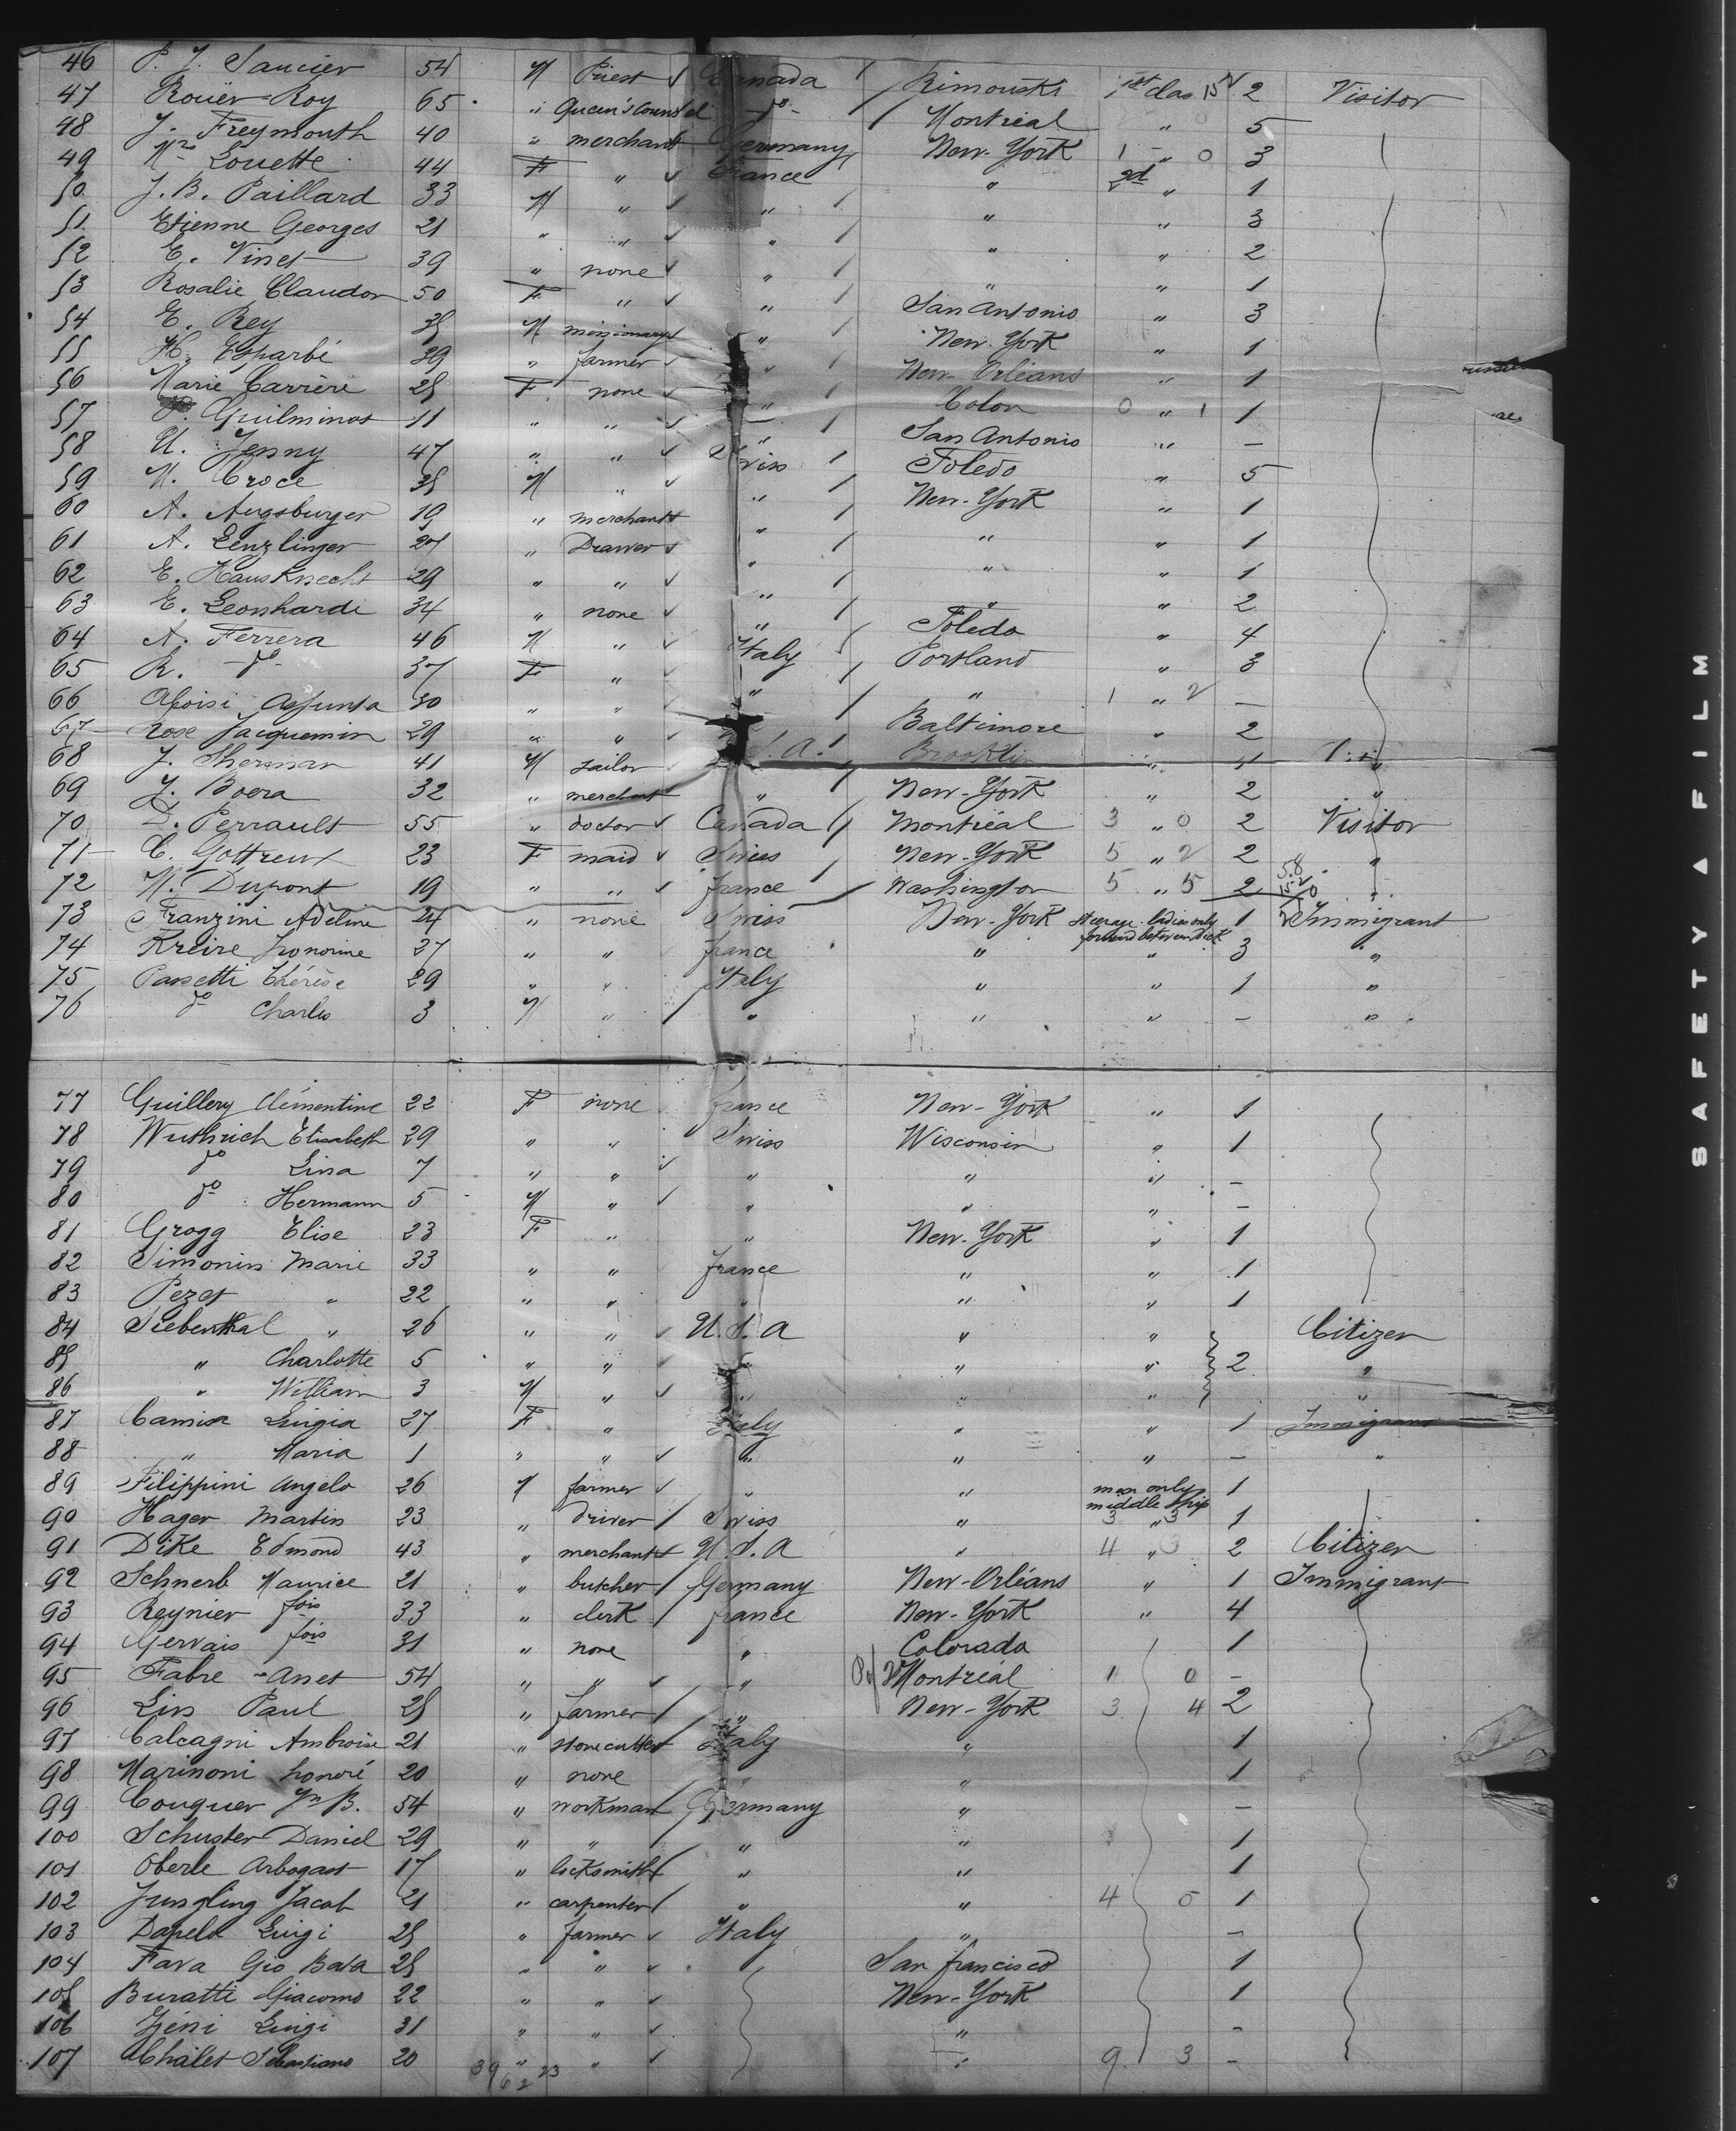 46 P. J. Saucier 54 M Priest Canada Rimouski 1st class 15 2 Visitor
47 Rouër Roy 65 " Queen's Counsel do Montreal " 0 5
48 J. Freymouth 40 " merchant Germany New-York 1 - " 0 3
49 Mrs Louette 44 F " France " 2d " 1
50 J. B. Paillard 33 M " " " " 3
51 Etienne Georges 21 " " " " " 2
52 E. Vinet 39 " none " " " 1
53 Rosalie Claudon 50 F " " San Antonio " 3
54 E. Rey 35 M missionary " New-York " 1
55 H. Esparbé 39 " farmer " New-Orléans " 1
56 Marie Carrère 25 F none " Colon 0 " 1 1
57 Guilminot 11 " " " San Antonio " -
58 U. Jenny 47 " " Swiss Toledo " 5
59 M. Croce 35 M " " New-York " 1
60 A. Augsburger 19 " merchant " " " 1
61 A. Lenzlinger 24 " Drawer " " " 1
62 E. Hausknecht 29 " " " " " 2
63 E. Leonhardi 34 " none " Toledo " 4
64 A. Ferrera 46 M " Italy Portland " 3
65 R. do 37 F " " " 1 " 2 -
66 Aloisi Assunta 30 " " " Baltimore " 2
67 Rose Jacquemin 29 " " Brooklin "
68 J. Sherman 41 M tailor U.S.A. New-York " 2 "
69 J. Boera 32 " merchant "
70 D. Perrault 55 " doctor Canada Montréal 3 " 0 2 Visitor
71 C. Gottreux 23 F maid Swiss New-York 5 " 2 2 "
72 M. Dupont 19 " " france Washington 5 " 5 2 "
73 Franzini Adeline 24 " none Swiss New-York steerage ladies only forward between deck 1 Immigrant
74 Kreire honorine 27 " " france " " 3 "
75 Passetti Thérèse 29 " " Italy " " 1 "
76 do Charles 3 M " " " " - "
77 Guillery Clémentine 22 F none france New-York " 1
78 Wuthrich Elisabeth 29 " " Swiss Wisconsin " 1
79 do Lina 7 " " " " " -
80 do Hermann 5 M " " " " -
81 Grogg Elise 23 F " " New-York " 1
82 Simonin Marie 33 " " france " " 1
83 Pezet " 22 " " " " " 1
84 Siebenthal " 26 " " U.S.A " " Citizen
85 " Charlotte 5 " " " " " 2 "
86 " William 3 M " " " " "
87 Camisa Luigia 27 F " Italy " " 1 Immigrant
88 " Maria 1 " " " " " - "
89 Filippini Angelo 26 M farmer " " men only middle ship 1
90 Hager Martin 23 " driver Swiss " 3 " 3 1
91 Dike Edmond 43 " merchant U.S.A " 4 " 3 2 Citizen
92 Schnerb Maurice 21 " butcher Germany New-Orléans " 1 Immigrant
93 Reynier fois 33 " clerk france New-York " 4
94 Gervais fois 31 " none " Colorado 1
95 Fabre Anet 54 " " " Montréal 1 0 -
96 Lis Paul 25 " farmer " New-York 3 4 2
97 Calcagni Ambroise 21 " stonecutter Italy " 1
98 Marinoni honoré 20 " none " " 1
99 Couquer Jn B. 54 " workman Germany " -
100 Schuster Daniel 29 " " " " 1
101 Oberle Arbogast 17 " locksmith " " 1
102 Jungling Jacob 21 " carpenter " " 4 0 1
103 Dapelo Luigi 25 " farmer Italy " -
104 Fava Gio Bata 25 " " " San francisco 1
105 Buratti Giacomo 22 " " New-York 1
106 Luigi 31 " " " -
107 Chalet Sebastiano 20 " " " 9 3 -
39 23
62
SAFETY FILM